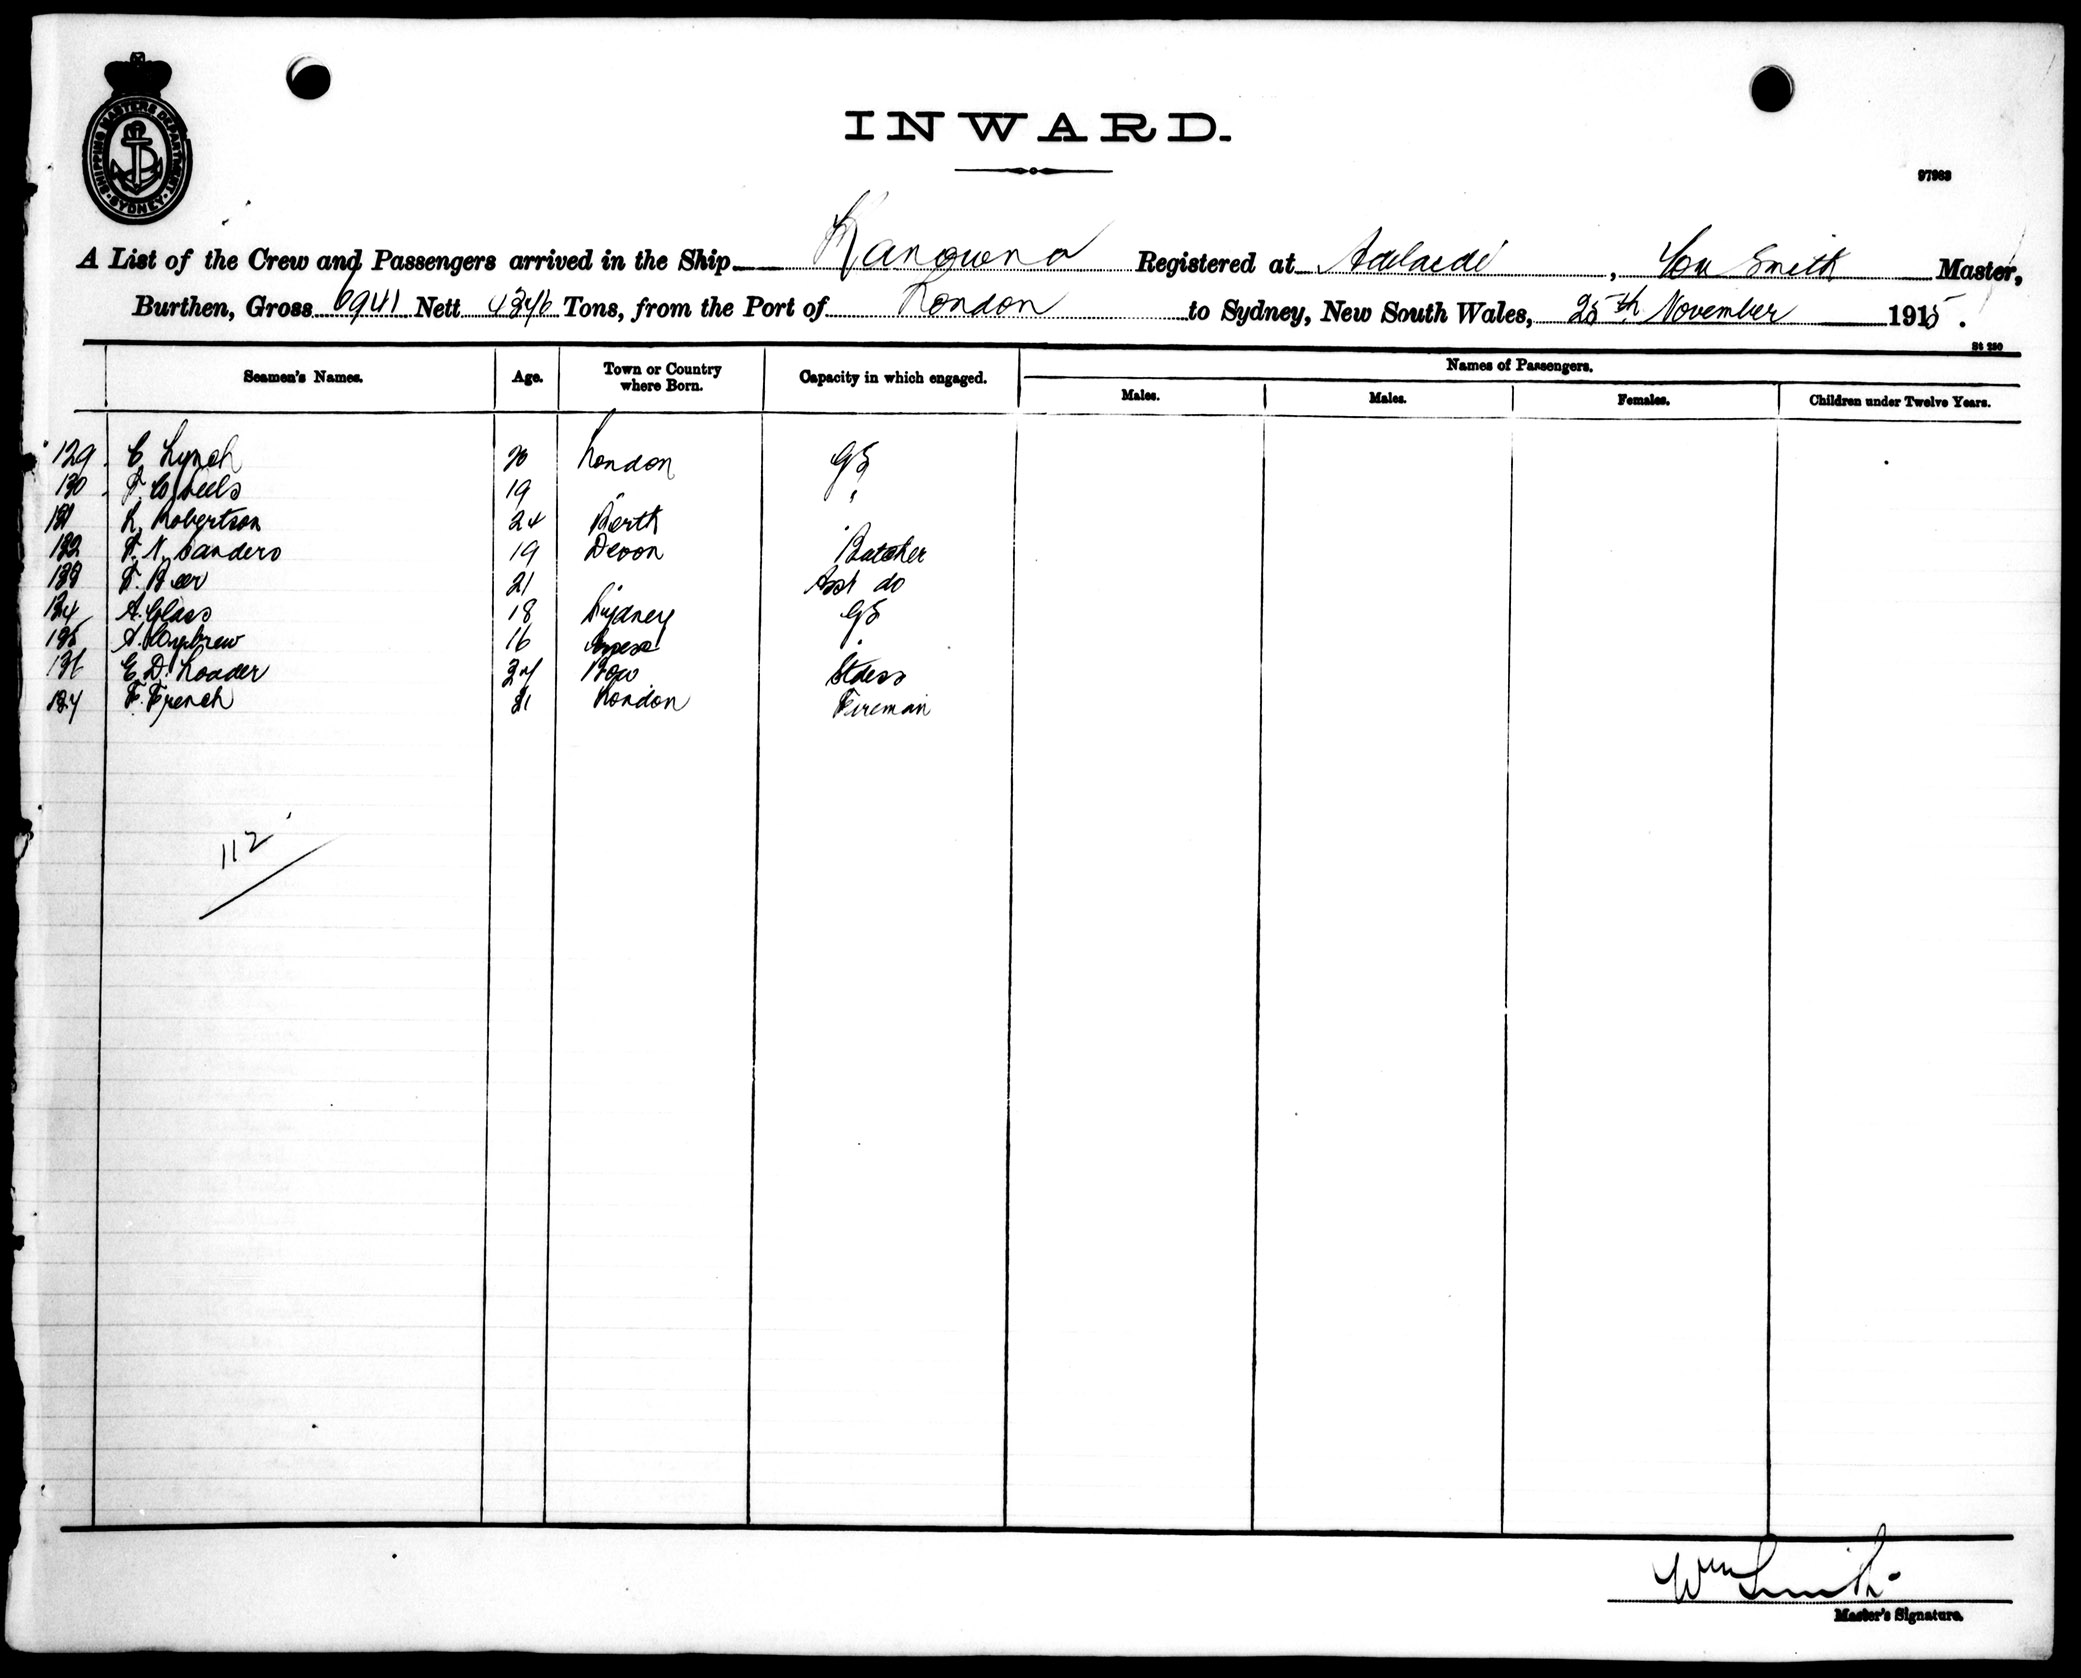 SHIPPING MASTERS DEPARTMENT
SYDNEY
INWARD.
97983
A List of the Crew and Passengers arrived in the Ship Kanowna Registered at Adelaide, Wm Smith Master,
Burthen, Gross 6941 Nett 4346 Tons, from the Port of London to Sydney, New South Wales, 25th November 1915.
St 250
Seamen's Names. Age. Town or Country where Born. Capacity in which engaged. Names of Passengers.
Males. Males. Females. Children under Twelve Years.
129 C Lynch 20 London GS
130 19 " "
131 R. Robertson 24 Perth "
132 F. N. Sanders 19 Devon Butcher
133 F. Beer 21 " Asst do
134 A. Glass 18 Sydney GS
135 A. 16 Essex "
136 E. D. Loader 34 Bow Stdess
137 F. French 31 London Fireman
112
Wm Smith
Master's Signature.